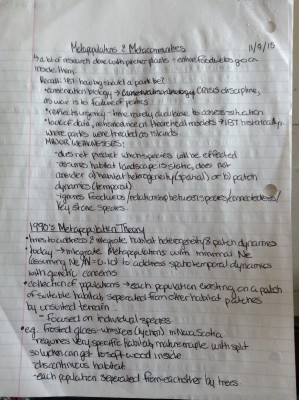 Metapopulations & Metacommunities 11/9/15
↳ a lot of research done with pitcher plants → entire foodwebs go on
inside them.
Recall: IBT having should a park be?
• conservation biology → conservation biology CRISIS discipline,
as war is to failure of politics
• reflects urgency → time rarely available to assess situation
• lack of data, reliance on theoretical models → IBT historically
where parks were treated as islands.
MAJOR WEAKNESSES:
- does not predict which species will be effected
- assumes habitat landscape is static, does not
consider a) habitat heterogeneity (spatial) or b) patch
dynamics (temporal)
- ignores food webs/relationships between species/connectedness/
key stone species.
1990's Metapopulation Theory
• tries to address & integrate habitat heterogeneity & patch dynamics
• today → integrate Metapopulations with minimal Ne
(assuming Ne/N = 0.10) to address spatiotemporal dynamics
with genetic concerns
• collection of populations → each population existing on a patch
of suitable habitat, seperated from other habitat patches
by unsuited terrain
- Focused on individual species
• e.g. Frosted glass-whiskers (lychen) in Nova Scotia
- requires very specific habitat, mature maple with split
so lychen can get to soft wood inside
- discontinuous habitat
- each population seperated from eachother by trees